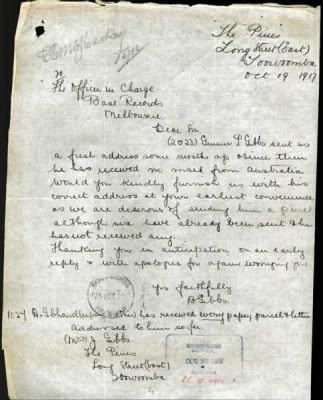 The Pines
Long Street (East)
Toowoomba
Oct 19 1917
To
The Officer in Charge
Base Records
Melbourne
Dear Sir
(2033) Gunner P Gibbs sent us
a fresh address some months ago & since then
he has received no mail from Australia
Would you kindly furnish us with his
correct address at your earliest convenience
as we are desirous of sending him a parcel
although six have already been sent & he
has not received any.
Thanking you in anticipation of an early
reply & with apologies for again worrying you
yrs faithfully
B Gibbs.
1027 A. Gibbs has received every paper, parcel & letter
addressed to him so far.
(Mrs) J Gibbs
The Pines
Long Street (East)
Toowoomba